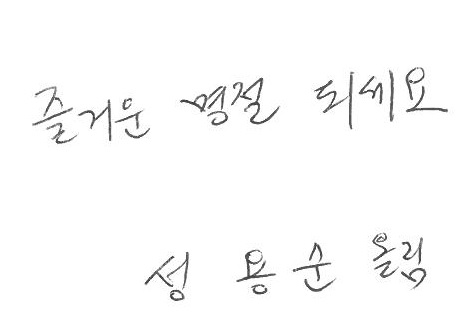 즐거운 명절 되세요
성 용순 올림